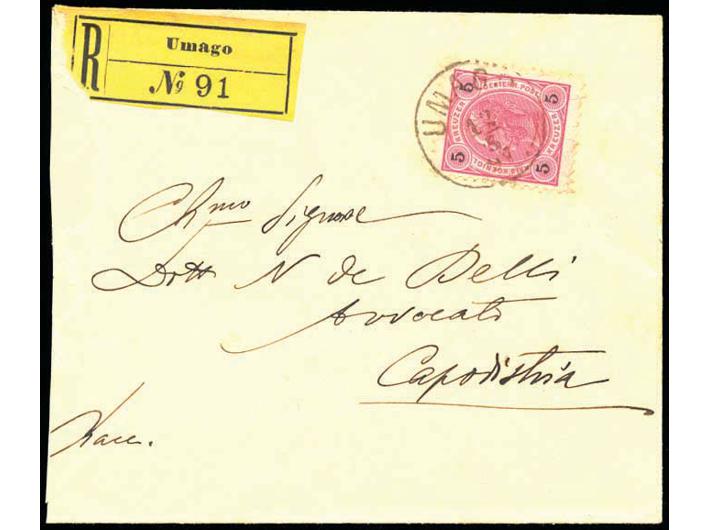 R
Umago
№ 91
UMAGO
5 5 5 5
KREUZER
KREUZER
Chmo Signore
Dott N de Belli
Avvocato
Capodistria
Racc.